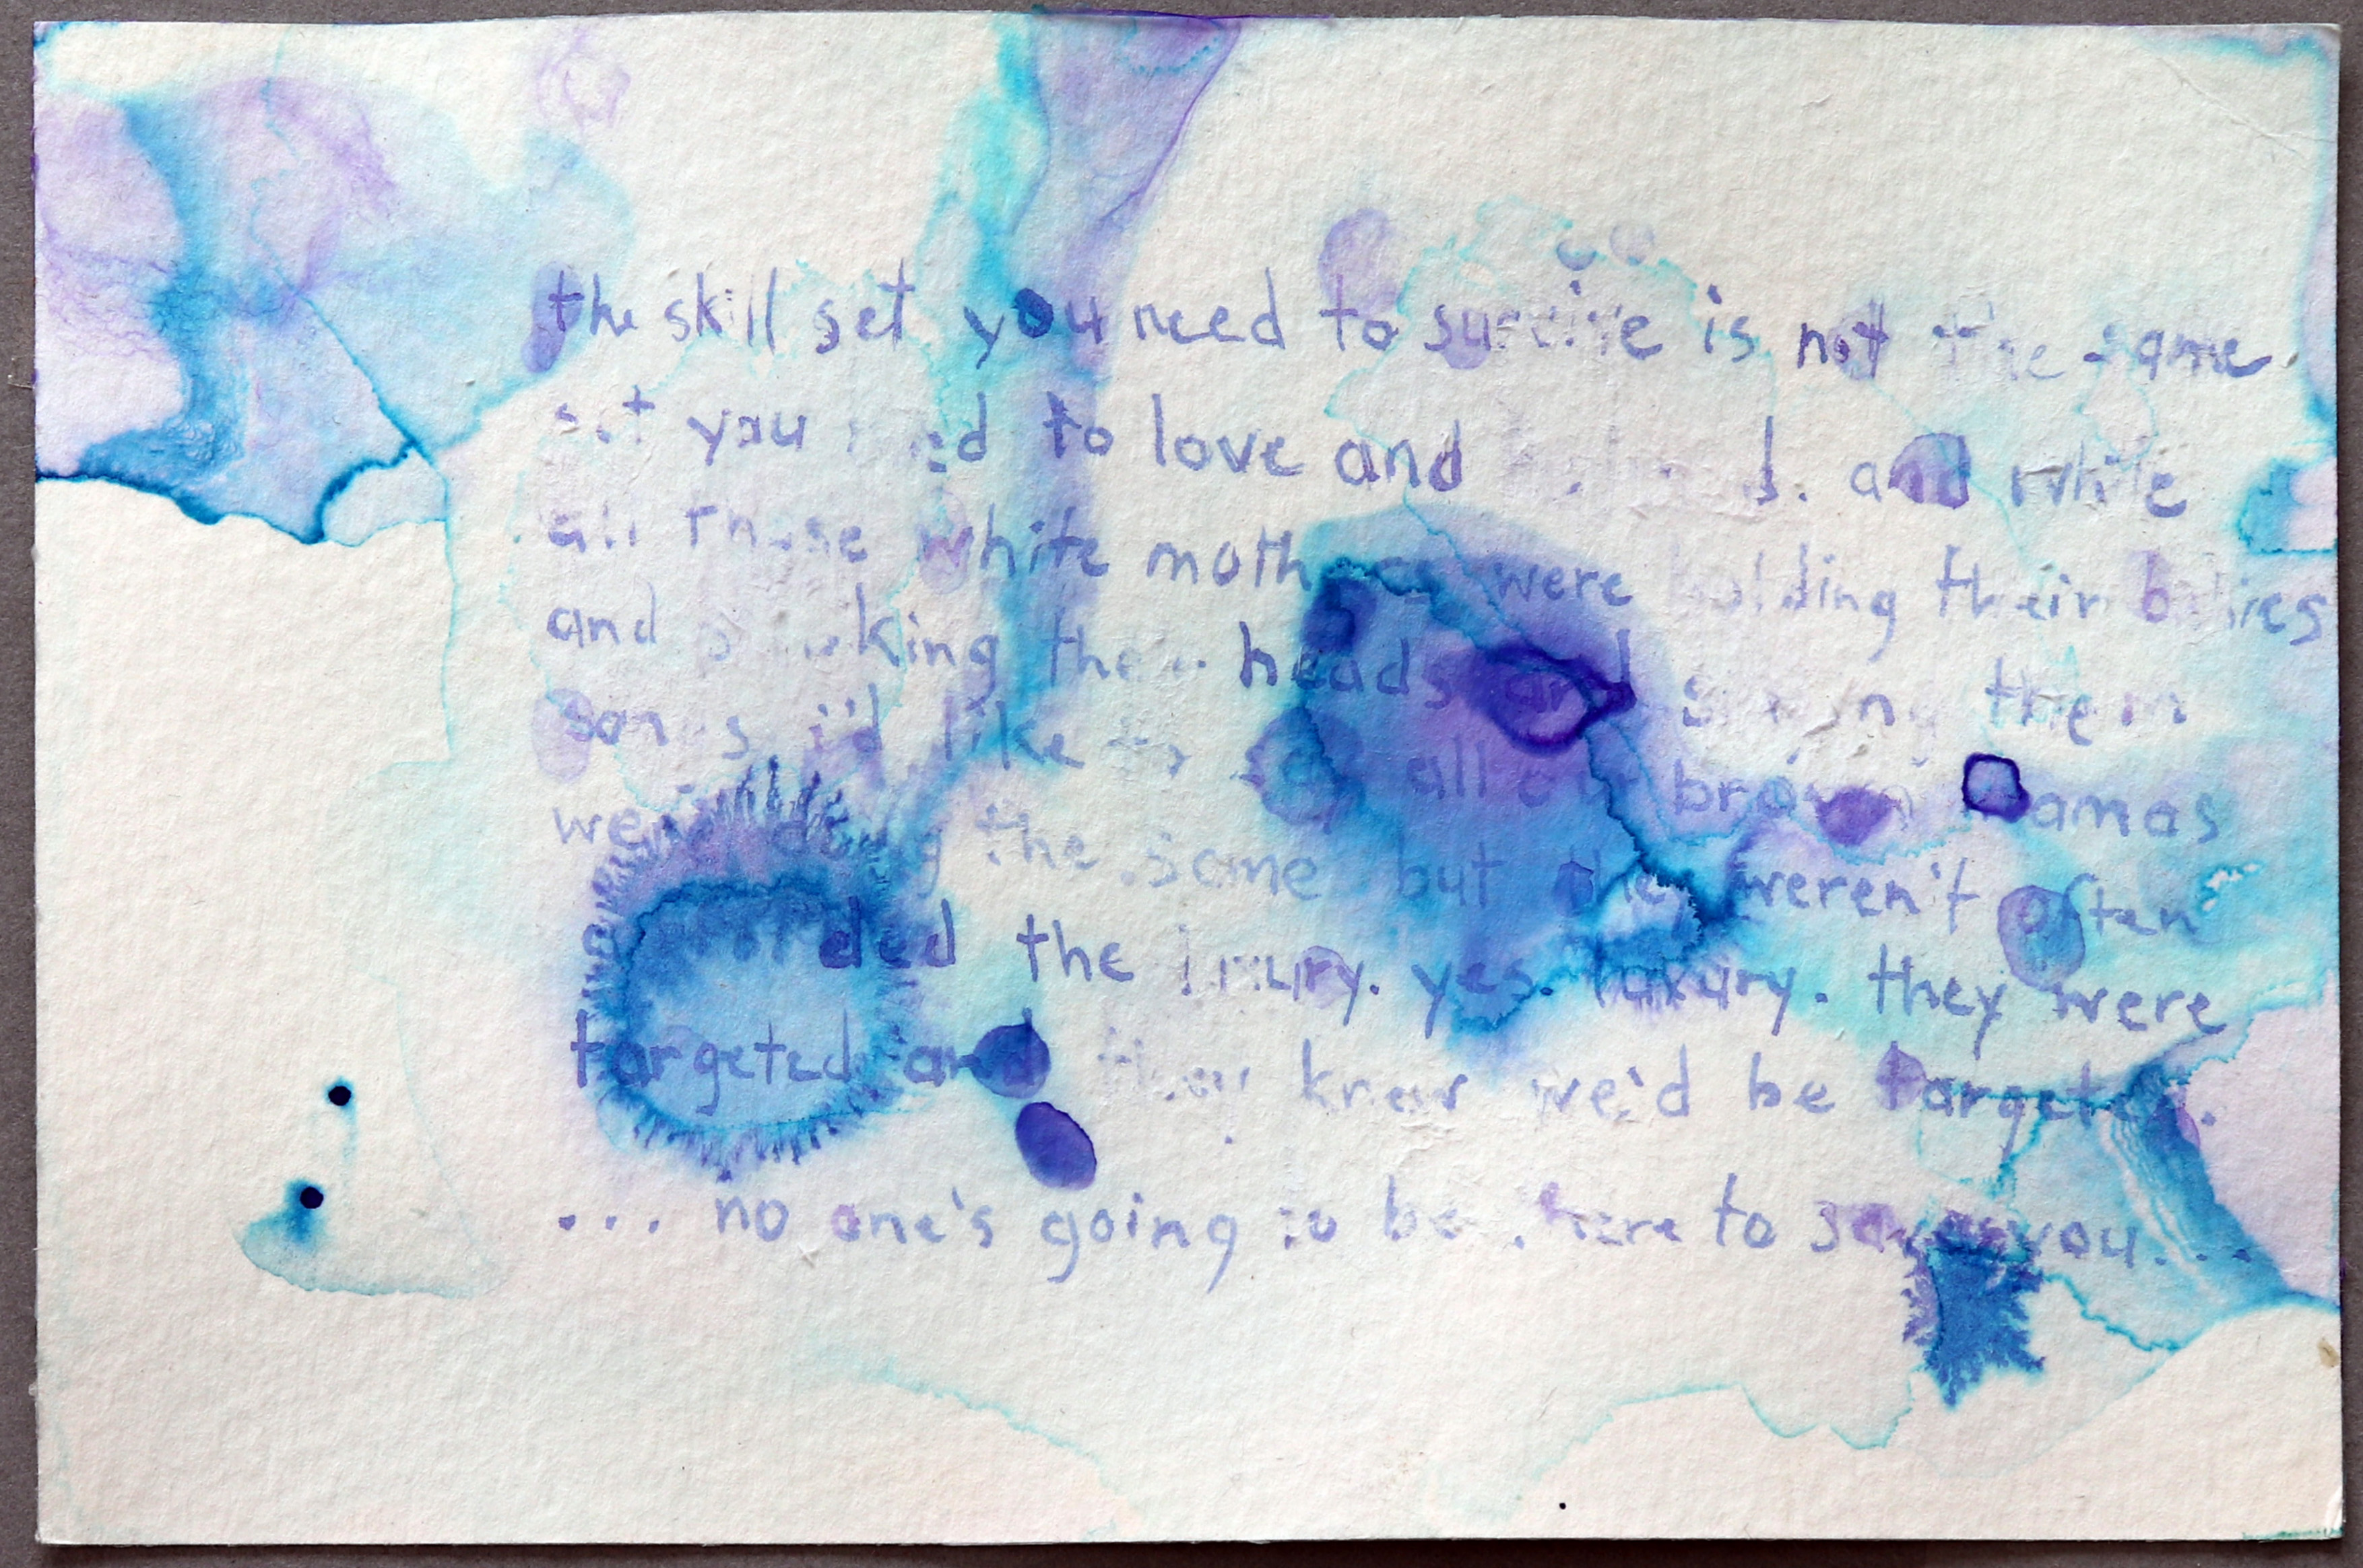 the skill set you need to survive is not the same
set you need to love and be loved. and while
all those white mothers were holding their babies
and stroking their heads and singing them
songs i'd like to say all our brown mamas
were doing the same but they weren't often
afforded the luxury. yes. luxury. they were
targeted and they knew we'd be targeted.
... no one's going to be there to save you...